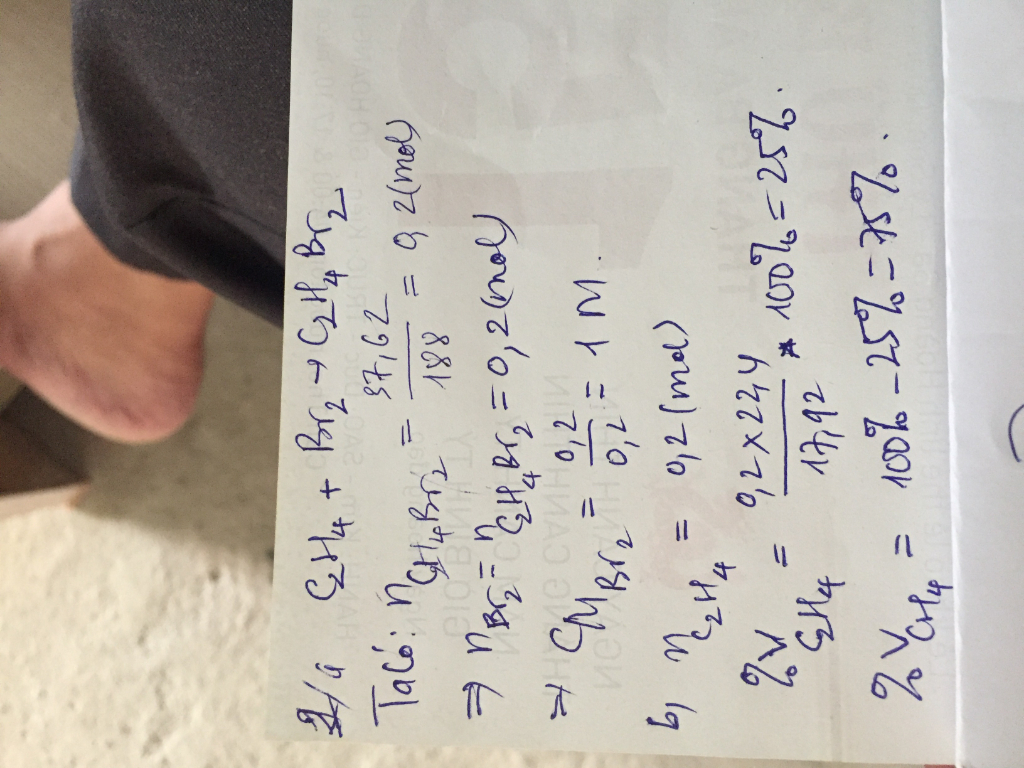 2/a C2H4 + Br2 → C2H4Br2
Ta có: nC2H4Br2 = 37,62/188 = 0,2 (mol)
⇒ nBr2 = nC2H4Br2 = 0,2 (mol)
→ CMBr2 = 0,2/0,2 = 1 M.
b, nC2H4 = 0,2 (mol)
%VC2H4 = 0,2 x 22,4/17,92 * 100% = 25%.
%VCH4 = 100% - 25% = 75%.